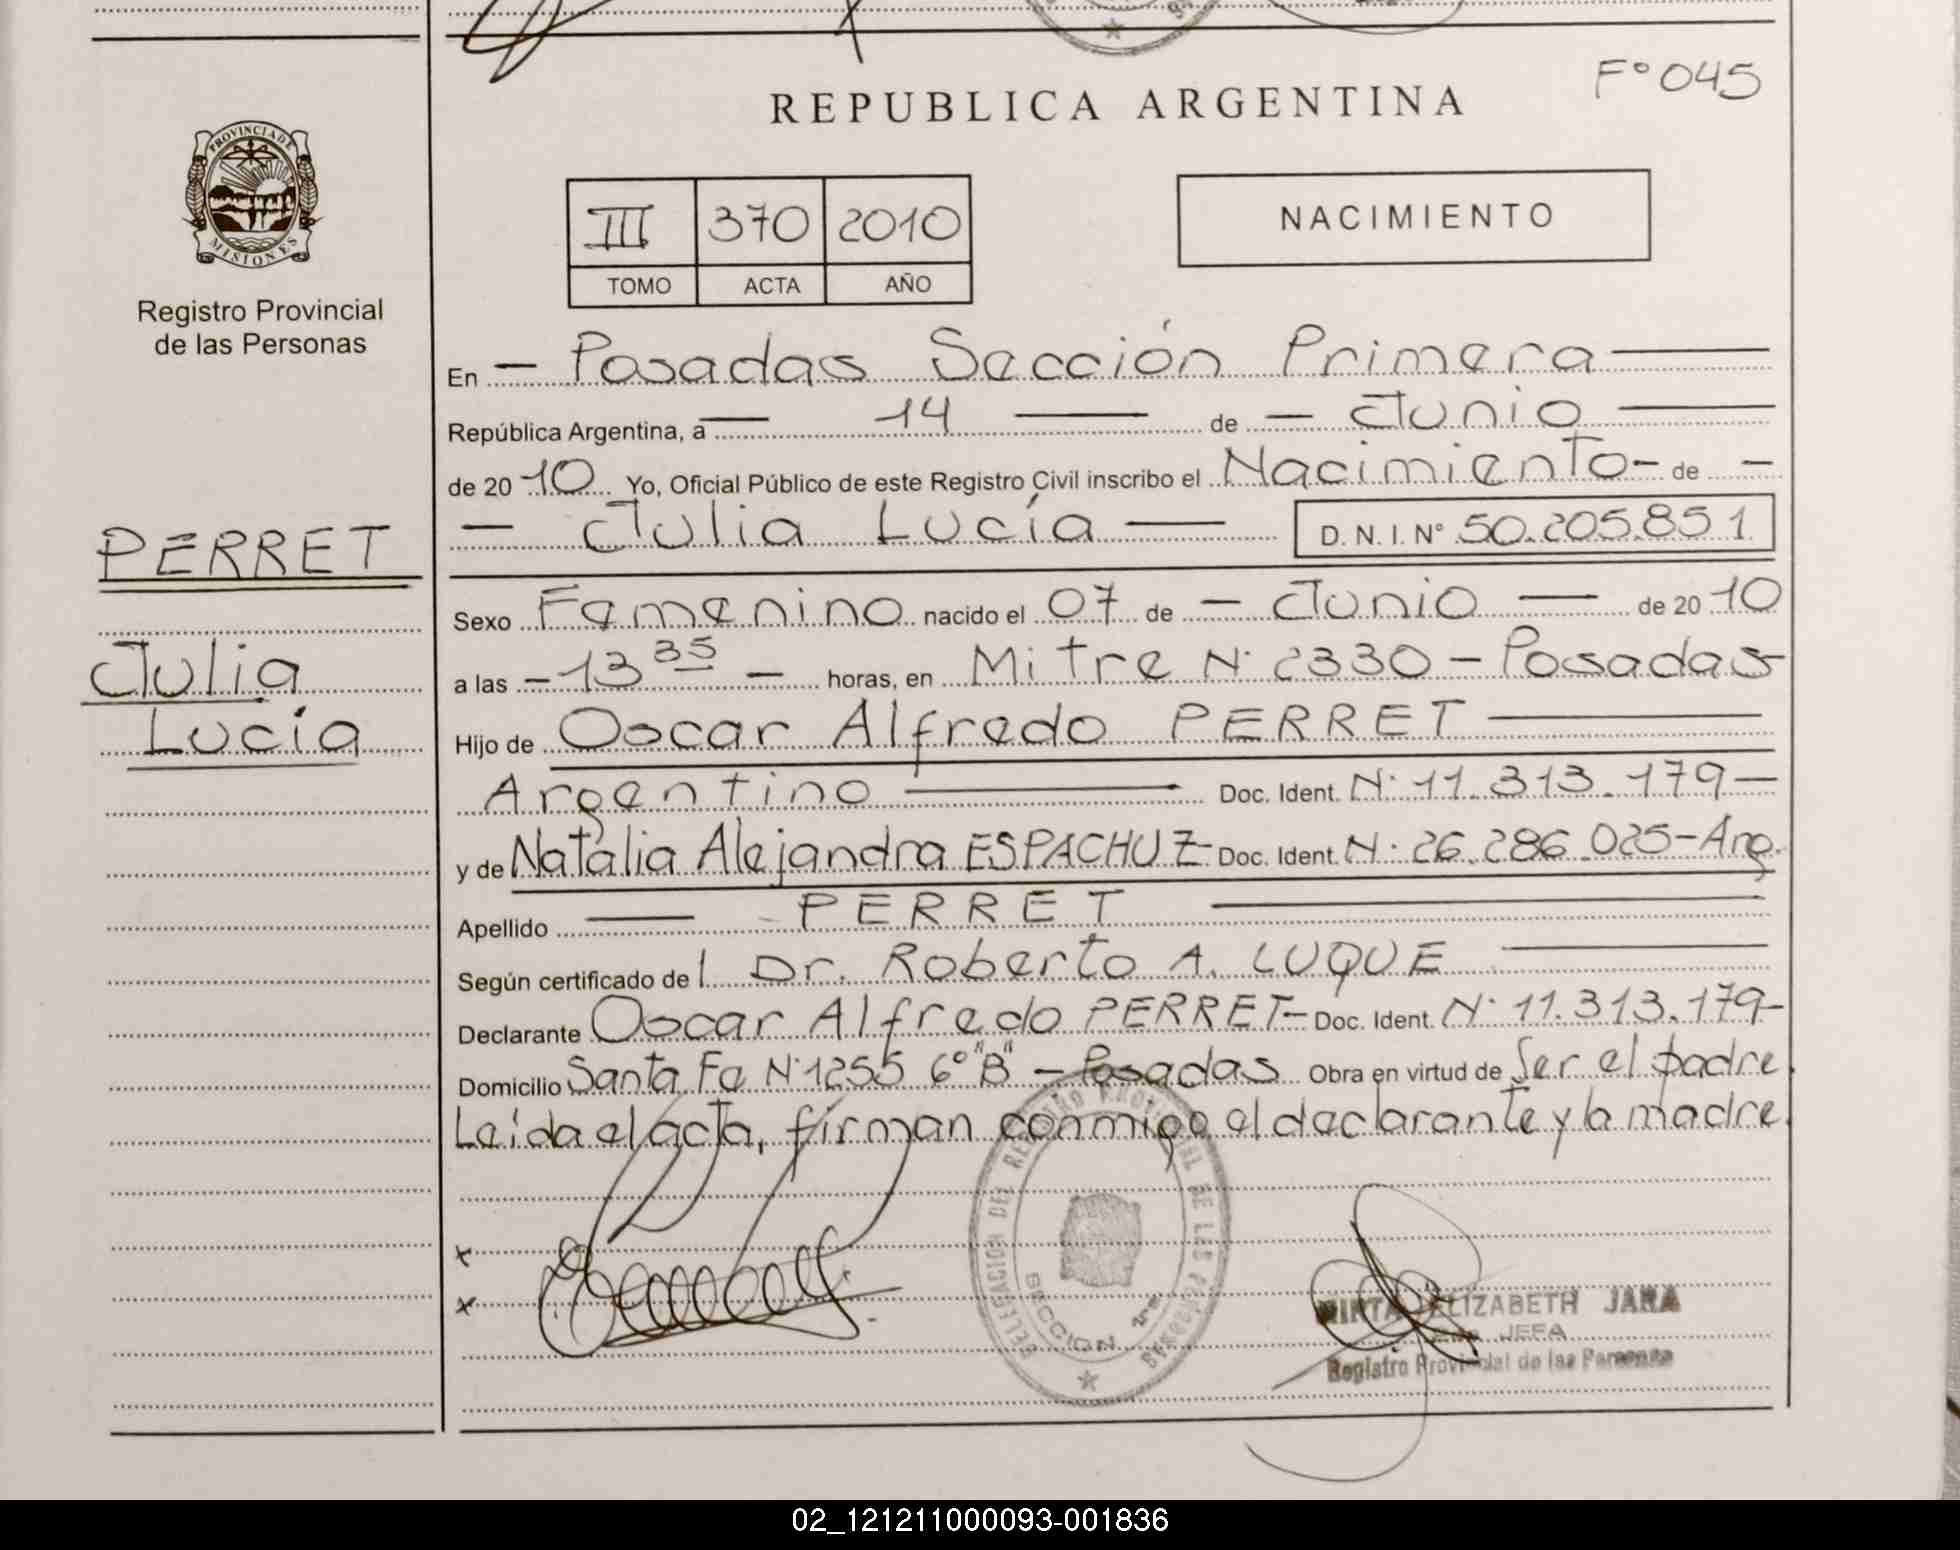 F° 045
REPUBLICA ARGENTINA
PROVINCIA DE
MISIONES
Registro Provincial
de las Personas
III 370 2010
TOMO ACTA AÑO
NACIMIENTO
En — Posadas Sección Primera —
República Argentina, a — 14 — de — Junio —
de 20 10 Yo, Oficial Público de este Registro Civil inscribo el Nacimiento - de —
— Julia Lucía — D. N. I. N° 50.205.851
PERRET
Julia
Lucía
Sexo Femenino nacido el 07 de — Junio — de 20 10
a las - 13 35 — horas, en Mitre N° 2330 - Posadas
Hijo de Oscar Alfredo PERRET —
Argentino — Doc. Ident. N° 11.313.179 —
y de Natalia Alejandra ESPACHUZ Doc. Ident. N° 26.286.025 - Arg.
Apellido — PERRET —
Según certificado del Dr. Roberto A. LUQUE —
Declarante Oscar Alfredo PERRET - Doc. Ident. N° 11.313.179 -
Domicilio Santa Fe N° 1255 6° "B" - Posadas Obra en virtud de Ser el padre.
Leída el acta, firman conmigo el declarante y la madre.
x
x
DELEGACION DEL REGISTRO PROVINCIAL DE LAS PERSONAS
SECCION 1ra
MIRTA ELIZABETH JARA
JEFA
Registro Provincial de las Personas
02_121211000093-001836